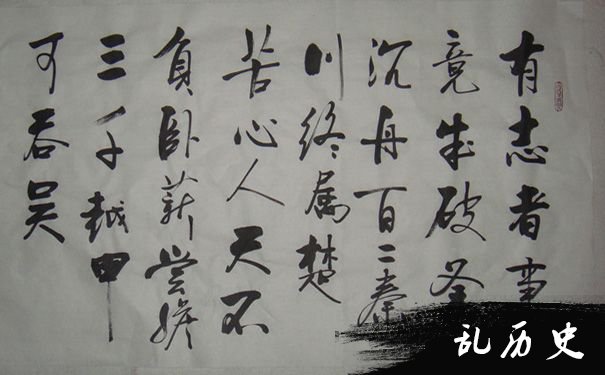 有志者事
竟成破釜
沉舟百二秦
川終属楚
苦心人天不
負卧薪嘗膽
三千越甲
可吞吴
乱历史